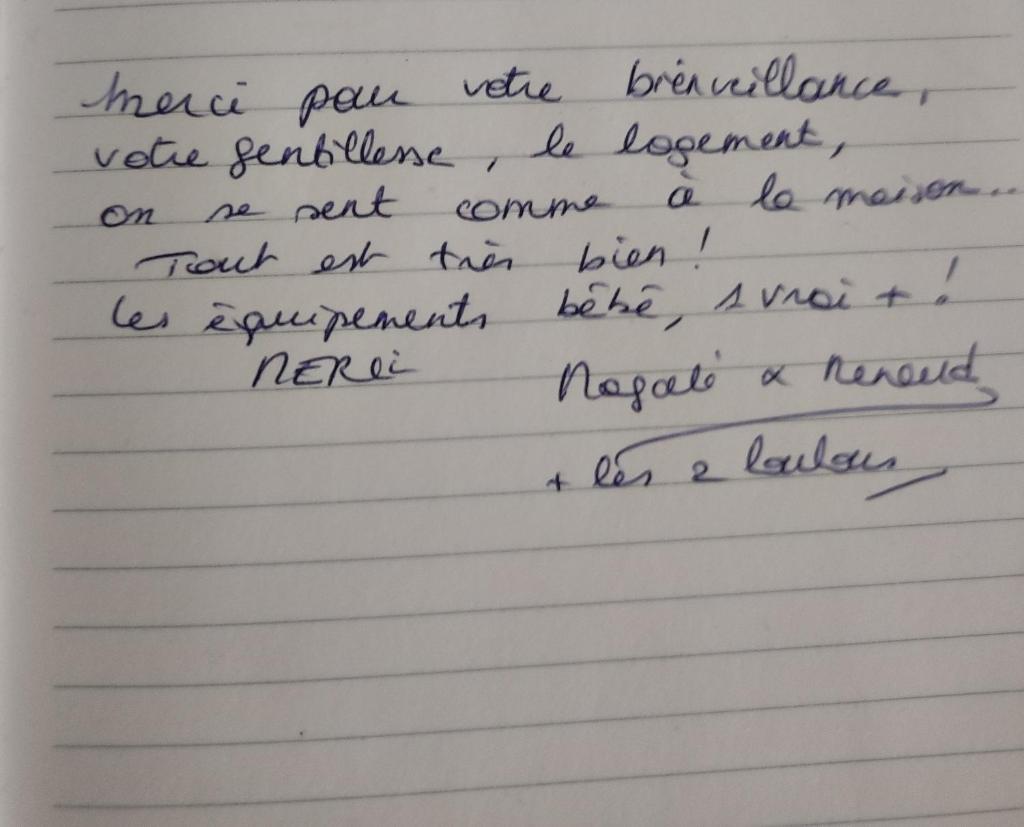 Merci pour votre bienveillance,
votre gentillesse, le logement,
on se sent comme à la maison..
Tout est très bien !
les équipements bébé, 1 vrai + !
MERCi
Magali & Renaud
+ les 2 loulous